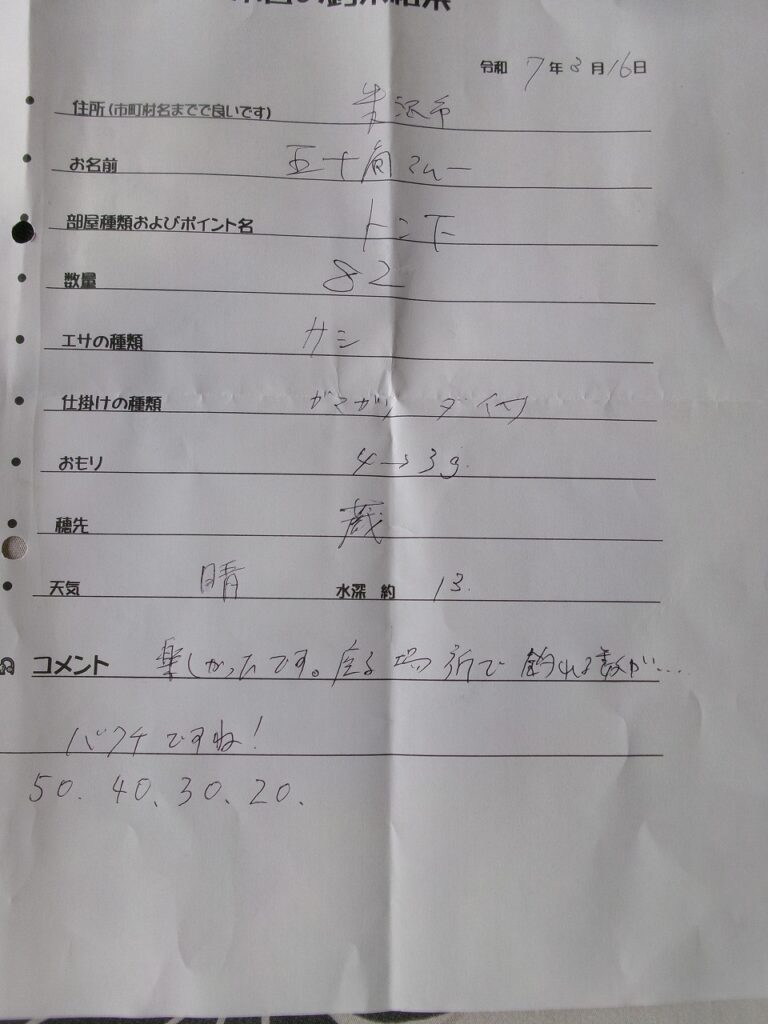 の釣果結果
令和 7 年 3 月 16 日
住所(市町村名までで良いです) 米沢市
お名前 五十嵐
部屋種類およびポイント名 トン下
数量 82
エサの種類 サシ
仕掛けの種類 がまがつ
おもり 4→3g.
穂先 蔵
天気 晴 水深 約 13.
コメント 楽しかったです。座る場所で釣れる数が…
バクチですね!
50. 40、30、20、